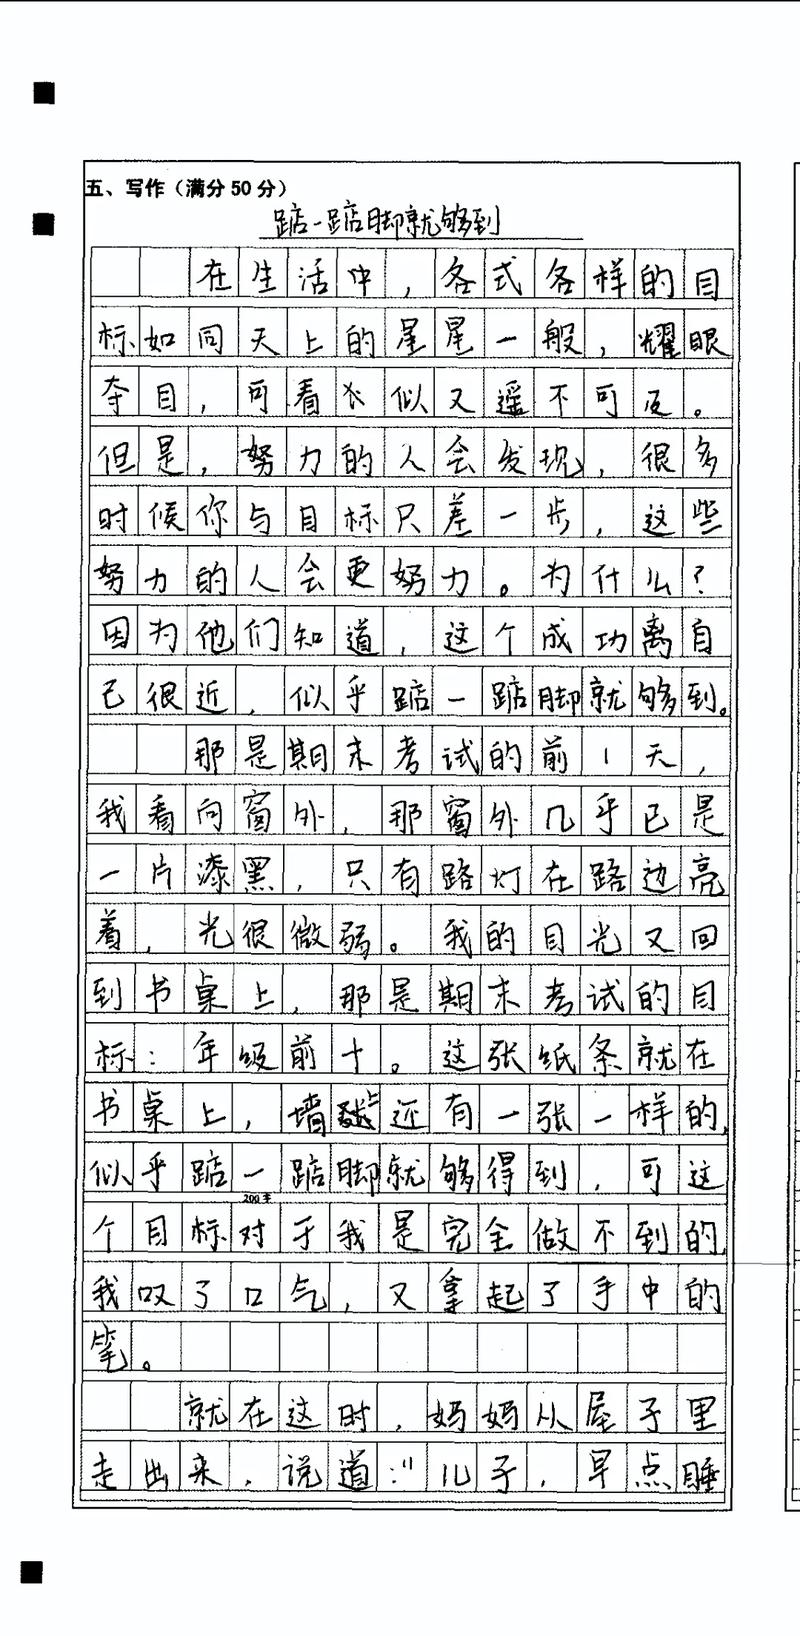 五、写作（满分50分）
踮一踮脚就够到
在生活中，各式各样的目
标如同天上的星星一般，耀眼
夺目，可看似又遥不可及。
但是，努力的人会发现，很多
时候你与目标只差一步，这些
努力的人会更努力。为什么？
因为他们知道，这个成功离自
己很近，似乎踮一踮脚就够到。
那是期末考试的前1天，
我看向窗外，那窗外几乎已是
一片漆黑，只有路灯在路边亮
着，光很微弱。我的目光又回
到书桌上，那是期末考试的目
标：年级前十。这张纸条就在
书桌上，墙上还有一张一样的，
似乎踮一踮脚就够得到，可这
200字
个目标对于我是完全做不到的，
我叹了口气，又拿起了手中的
笔。
就在这时，妈妈从屋子里
走出来，说道："儿子，早点睡